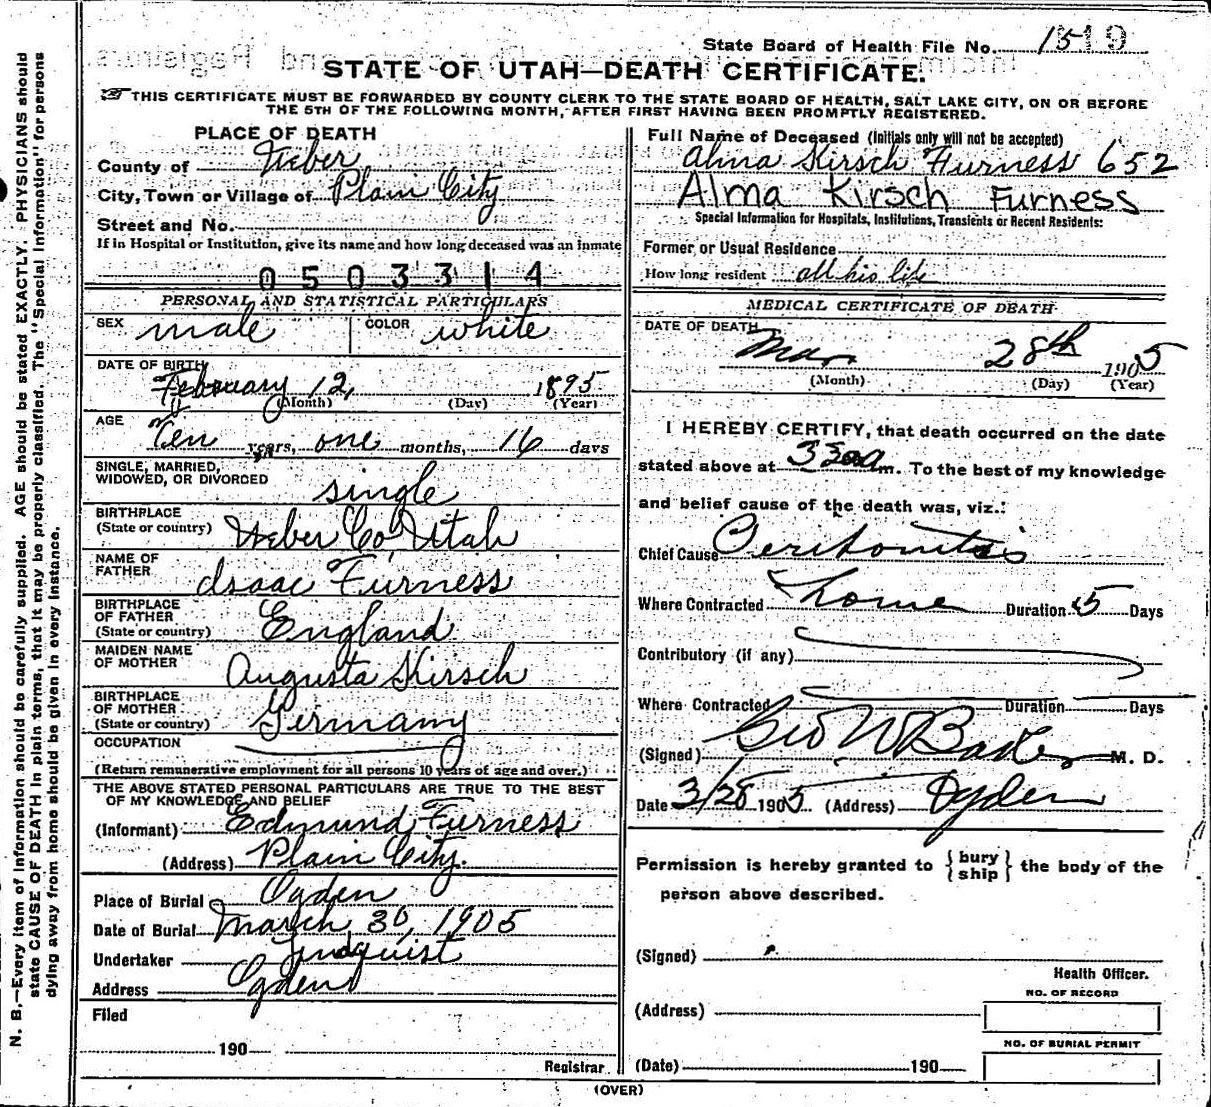 State Board of Health File No. 1519
STATE OF UTAH—DEATH CERTIFICATE.
THIS CERTIFICATE MUST BE FORWARDED BY COUNTY CLERK TO THE STATE BOARD OF HEALTH, SALT LAKE CITY, ON OR BEFORE
THE 5TH OF THE FOLLOWING MONTH, AFTER FIRST HAVING BEEN PROMPTLY REGISTERED.
PLACE OF DEATH
County of Weber
City, Town or Village of Plain City
Street and No.
If in Hospital or Institution, give its name and how long deceased was an inmate
0503314
PERSONAL AND STATISTICAL PARTICULARS
SEX male COLOR white
DATE OF BIRTH
February 12, 1895
(Month) (Day) (Year)
AGE
Ten years, one months, 16 days
SINGLE, MARRIED,
WIDOWED, OR DIVORCED single
BIRTHPLACE
(State or country) Weber Co, Utah
NAME OF
FATHER Isaac Furness
BIRTHPLACE
OF FATHER
(State or country) England
MAIDEN NAME
OF MOTHER Augusta Kirsch
BIRTHPLACE
OF MOTHER
(State or country) Germany
OCCUPATION
(Return remunerative employment for all persons 10 years of age and over.)
THE ABOVE STATED PERSONAL PARTICULARS ARE TRUE TO THE BEST
OF MY KNOWLEDGE AND BELIEF
(Informant) Edmund Furness
(Address) Plain City.
Place of Burial Ogden
Date of Burial March 30, 1905
Undertaker Lindquist
Address Ogden
Filed
190
Registrar
Full Name of Deceased (Initials only will not be accepted)
Alma Kirsch Furness 652
Alma Kirsch Furness
Special Information for Hospitals, Institutions, Transients or Recent Residents:
Former or Usual Residence
How long resident all his life
MEDICAL CERTIFICATE OF DEATH
DATE OF DEATH
Mar 28th 1905
(Month) (Day) (Year)
I HEREBY CERTIFY, that death occurred on the date
stated above at 330 a m. To the best of my knowledge
and belief cause of the death was, viz.:
Chief Cause Peritonitis
Where Contracted home Duration 5 Days
Contributory (if any)
Where Contracted Duration Days
(Signed) Geo W Baker M. D.
Date 3/28 1905 (Address) Ogden
Permission is hereby granted to { bury ship } the body of the
person above described.
(Signed)
Health Officer.
NO. OF RECORD
(Address)
NO. OF BURIAL PERMIT
(Date) 190
(OVER)
N. B.—Every item of information should be carefully supplied. AGE should be stated EXACTLY. PHYSICIANS should
state CAUSE OF DEATH in plain terms, that it may be properly classified. The "Special Information" for persons
dying away from home should be given in every instance.